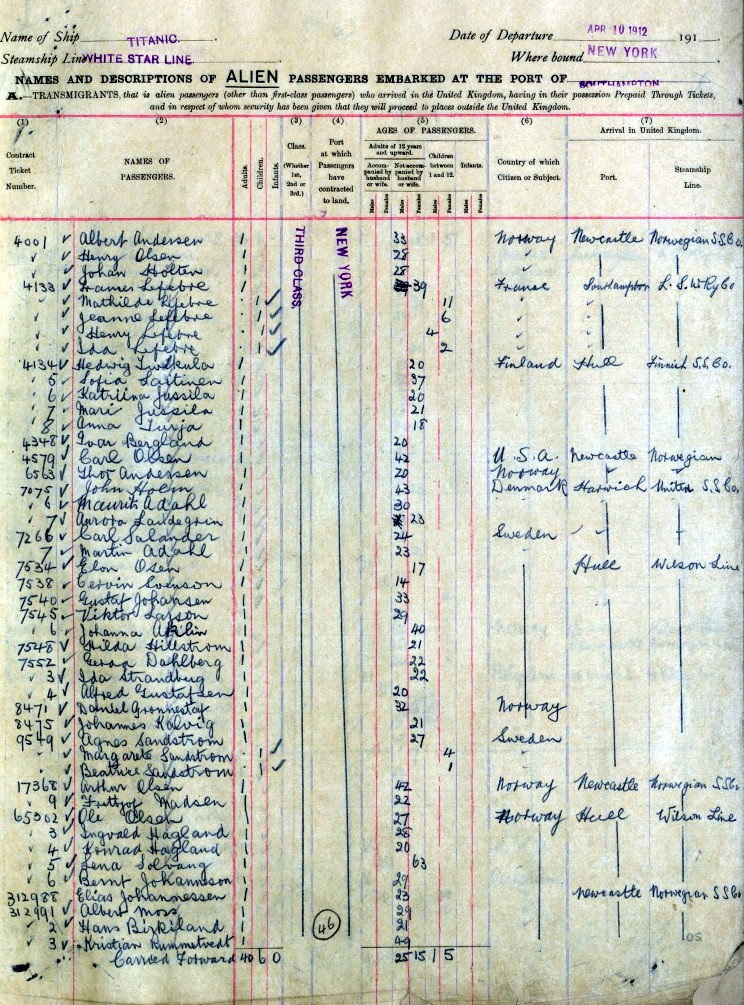 Name of Ship TITANIC. Date of Departure APR 10 1912 191
Steamship Line WHITE STAR LINE. Where bound NEW YORK
NAMES AND DESCRIPTIONS OF ALIEN PASSENGERS EMBARKED AT THE PORT OF SOUTHAMPTON
A.—TRANSMIGRANTS, that is alien passengers (other than first-class passengers) who arrived in the United Kingdom, having in their possession Prepaid Through Tickets,
and in respect of whom security has been given that they will proceed to places outside the United Kingdom.
(1) (2) (3) (4) (5) (6) (7)
Contract Ticket Number.
NAMES OF PASSENGERS.
Adults. Children. Infants.
Class. (Whether 1st, 2nd or 3rd.)
Port at which Passengers have contracted to land.
AGES OF PASSENGERS.
Adults of 12 years and upward.
Accompanied by husband or wife. Not accompanied by husband or wife.
Children between 1 and 12.
Infants.
Males Females Males Females Males Females Males Females
Country of which Citizen or Subject.
Arrival in United Kingdom.
Port. Steamship Line.
THIRD CLASS.
NEW YORK
4001 ✓ Albert Andersen 1 33 Norway Newcastle Norwegian S.S.Co.
✓ Henry Olsen 1 28
✓ Johan Holten 1 28
4133 ✓ Frances Lefebre 1 39 France Southampton L.S.W.Ry Co
✓ Mathilde Lefebre 1 ✓ 11
✓ Jeanne Lefebre 1 ✓ 6
✓ Henry Lefebre 1 ✓ 4
✓ Ida Lefebre 1 ✓ 2
4134 ✓ Hedwig 1 20 Finland Hull Finnish S.S.Co.
5 ✓ Sofia Laitinen 1 37
6 ✓ Katriina Jussila 1 20
7 ✓ Mari Jussila 1 21
8 ✓ Anna Turja 1 18
4348 ✓ Ivar Bergland 1 20
4579 ✓ Carl Olsen 1 42 U.S.A. Newcastle Norwegian
6563 ✓ Thor Andersen 1 20 Norway
7075 ✓ John Holm 1 43 Denmark Harwich United S.S.Co.
6 ✓ Maurits Adahl 1 30
7 ✓ Aurora 1 23
7266 ✓ Carl Salander 1 24 Sweden
7 ✓ Martin Adahl 1 23
7534 ✓ Elon Osen 1 17 Hull Wilson Line
7538 ✓ Cervin Svenson 1 14
7540 ✓ Gustaf Johansen 1 33
7545 ✓ Viktor Larson 1 29
6 ✓ Johanna 1 40
7548 ✓ Hilda Hillstrom 1 21
7552 ✓ Gerda Dahlberg 1 22
3 ✓ Ida Strandbug 1 22
4 ✓ Alfred Gustafsen 1 20
8471 ✓ Daniel Gronnestay 1 32 Norway
8475 ✓ Johannes Kalvig 1 21
9549 ✓ Agnes Sandstrom 1 27 Sweden
✓ Margarete Sandstrom 1 ✓ 4
✓ Beatrice Sandstrom 1 ✓ 1
17368 ✓ Arthur Olsen 1 42 Norway Newcastle Norwegian S.S.Co.
9 ✓ Madsen 1 22
65302 ✓ Ole Olsen 1 27 Norway Hull Wilson Line
3 ✓ Ingvald Hagland 1 28
4 ✓ Konrad Hagland 1 20
5 ✓ Lena Solvang 1 63
6 ✓ Bernt Johanneson 1 29
312988 Elias Johannessen 1 23 Newcastle Norwegian S.S.Co
312991 ✓ Albert Moss 1 29
2 ✓ Hans Birkiland 1 21
3 ✓ Kristian Kummetvedt 1 49
46
Carried Forward 40 6 0 25 15 1 5